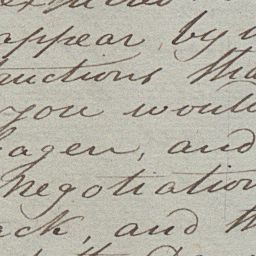 appear, by
uctions tha
you would
hagen, and
negotiation
ck, and th